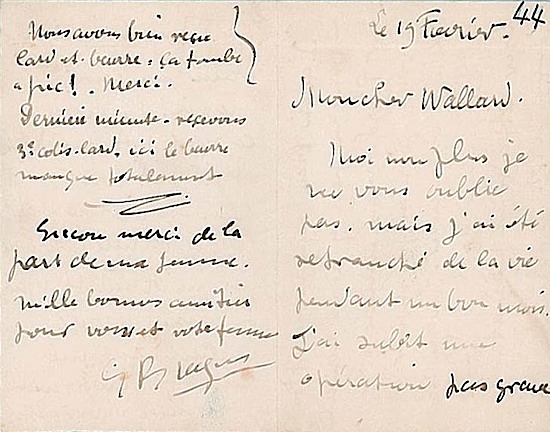 44
Le 19 Fevrier.
Moncher Wallard.
Moi non plus je
ne vous oublie
pas. mais j'ai été
retranché de la vie
pendant un bon mois.
J'ai subit une
opération pas grave
Nous avons bien reçu
lard et beurre. ça tombe
a pic!. Merci.
Dernière minute. recevons
3e colis. lard, ici le beurre
manque totalement
Encore merci de la
part de ma femme.
mille bonnes amitiés
pour vous et votre femme
G Braque